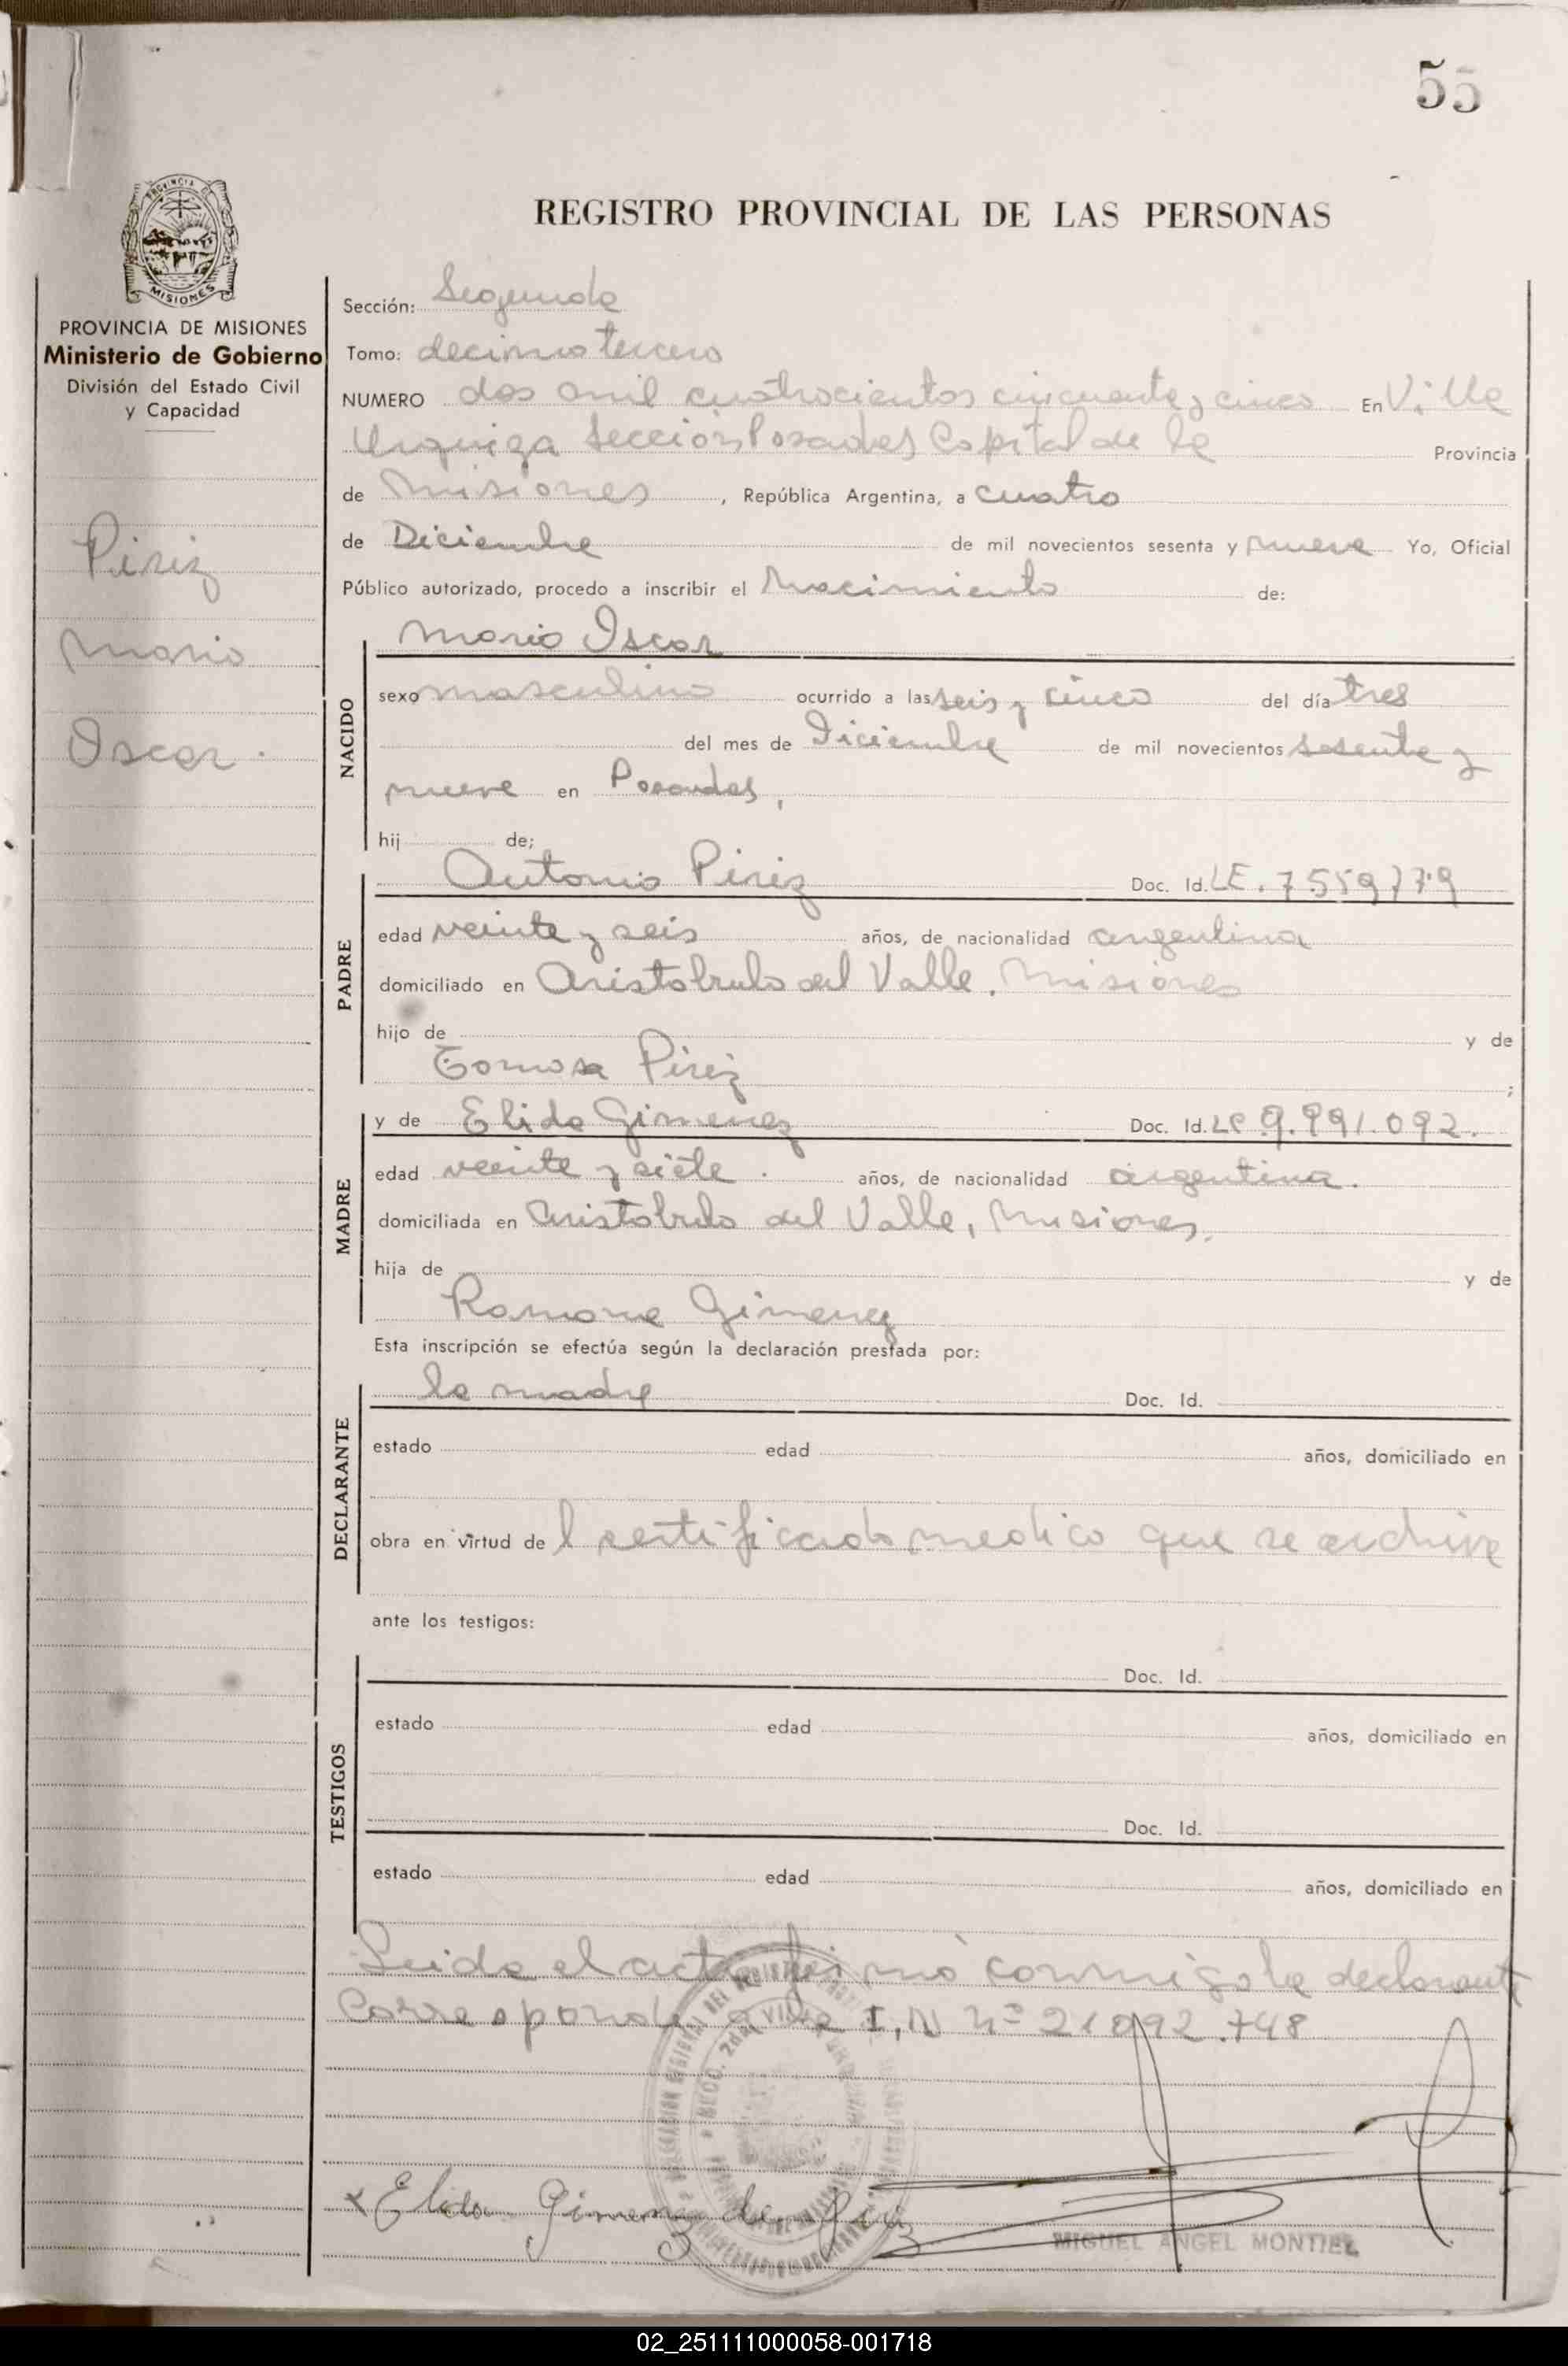 55
REGISTRO PROVINCIAL DE LAS PERSONAS
PROVINCIA DE MISIONES
Ministerio de Gobierno
División del Estado Civil
y Capacidad
Piriz
Mario
Oscar.
Sección: Segunda
Tomo: decimo tercero
NUMERO dos mil cuatrocientos cincuenta y cinco En Villa
Urquiza Sección Posadas Capital de la Provincia
de Misiones, República Argentina, a cuatro
de Diciembre de mil novecientos sesenta y nueve Yo, Oficial
Público autorizado, procedo a inscribir el Nacimiento de:
Mario Oscar
NACIDO
sexo masculino ocurrido a las seis y cinco del día tres
del mes de Diciembre de mil novecientos sesenta y
nueve en Posadas,
hij de;
PADRE
Antonio Piriz Doc. Id. LE. 7559779
edad veinte y seis años, de nacionalidad argentina
domiciliado en Aristobulo del Valle. Misiones
hijo de y de
Tomasa Piriz ;
MADRE
y de Elida Gimenez Doc. Id. LC 9.991.092.
edad veinte y siete. años, de nacionalidad argentina.
domiciliada en Aristobulo del Valle, Misiones.
hija de y de
Ramona Gimenez
Esta inscripción se efectúa según la declaración prestada por:
DECLARANTE
la madre Doc. Id.
estado edad años, domiciliado en
obra en virtud de l sertificado medico que se archiva
ante los testigos:
TESTIGOS
Doc. Id.
estado edad años, domiciliado en
Doc. Id.
estado edad años, domiciliado en
Leida el acta firmó conmigo la declarante
Corresponde I, N Nº 21092.748
Elida Gimenez de Piriz
MIGUEL ANGEL MONTIEL
02_251111000058-001718